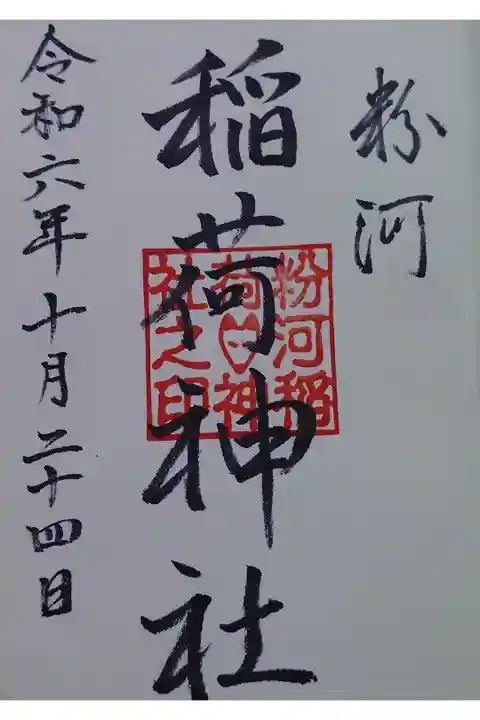 粉河
稲荷神社
粉河稲
荷神
社之印
令和六年十月二十四日